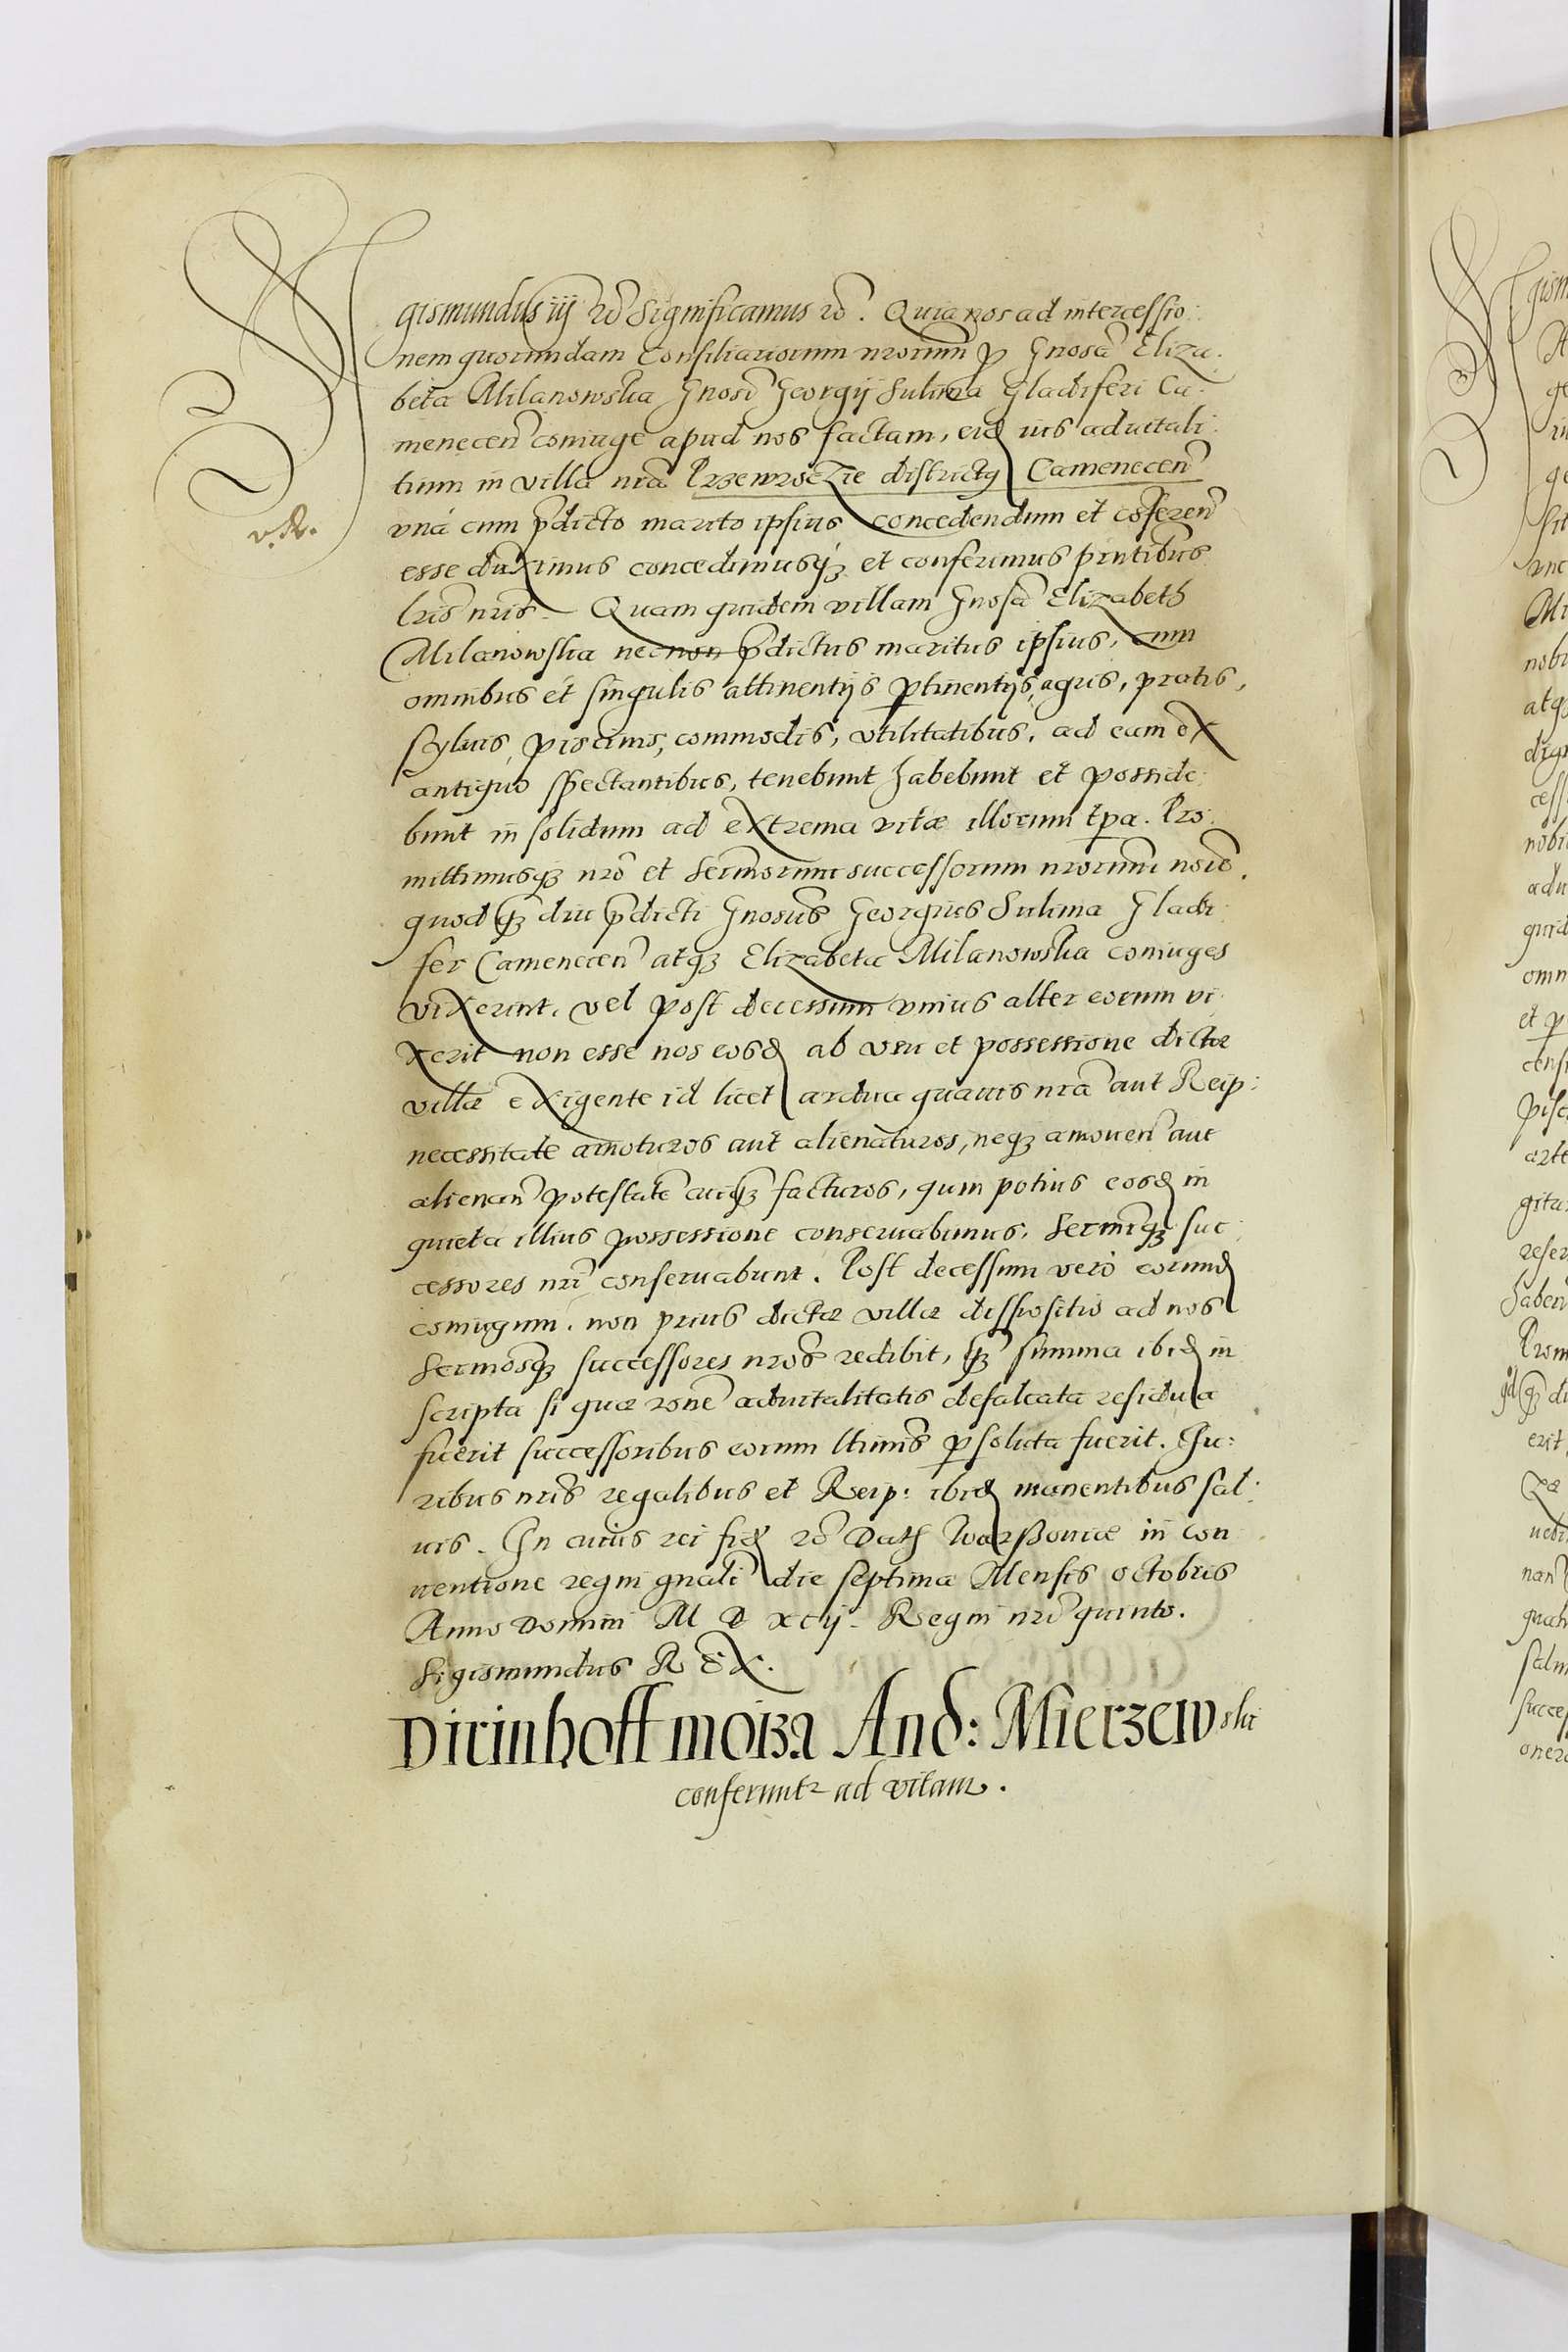 Sigismundus iij rc̃ Significamus rc̃. Quia nos ad intercessio:
nem quorundam Consiliariorum nrorum̃ p Gnosã Eliza:
beta Milanowska Gnosi̇̃ Georgij Sulima Gladiferi Ca:
meneceñ coniuge apud nos factam, eid ius aduitali:
tium in villa nrã Przewrocżie districtq Cameneceñ
vná cum p̃dicto marito ipsius concedendum et coñferen̄
esse duximus concedimusqȝ et conferimus pñtibus
lrĩs nrĩs. Quam quidem villam Gnosã Elizabeth
Milanowska necnon p̃dictus maritus ipsius, cum
omnibus et singulis attinentijs ptinentijs, agris, pratis,
syluis, piscinis, commodis, vtilitatibus, ad eam ex
antiquo spectantibus, tenebunt habebunt et posside:
bunt in solidum ad extrema vitæ illorum tpa. Pro:
mittimusqȝ nrõ et Sermorum̃ successorum nrorum̃ noiẽ.
quod qȝ̃ diu p̃dicti Gnosus̃ Georgius Sulima Gladi:
fer Camenecen̄ atqȝ Elizabeta Milanowska coniuges
vixerint, vel post decessum vnius alter eorum vi:
xerit non esse nos eosd ab vsu et possessione dictæ
villæ exigente id licet ardua quauis nrã aut Reip:
necessitate amoturos aut alienaturos, neqȝ amouen̄ aut
alienan̄ potestatẽ cuiqȝ̃ facturos, quin potius eosd in
quieta illius possessione conseruabimus, Sermiqȝ̃ suc:
cessores nrĩ conseruabunt. Post decessum verò eorumd
coniugum. non prius dictæ villæ dispositio ad nos
Sermosqȝ̃ successores nros̃ redibit, qȝ̃ summa ibid in
scripta si quæ ronẽ aduitalitatis defalcata residua
fuerit successoribus eorum ltimis̃ psoluta fuerit. Iu:
ribus nrĩs regalibus et Reip: ibid manentibus sal:
uis. In cuius rei fid rc̃ Dat Warßouiæ in con
uentione regni gnali̇̃ die septima Mensis Octobris
Anno Domini M D xcij. Regni nrĩ quinto.
Sigismundus REX.
v. R.
And: Mierzewski
conferunt ad vitam.